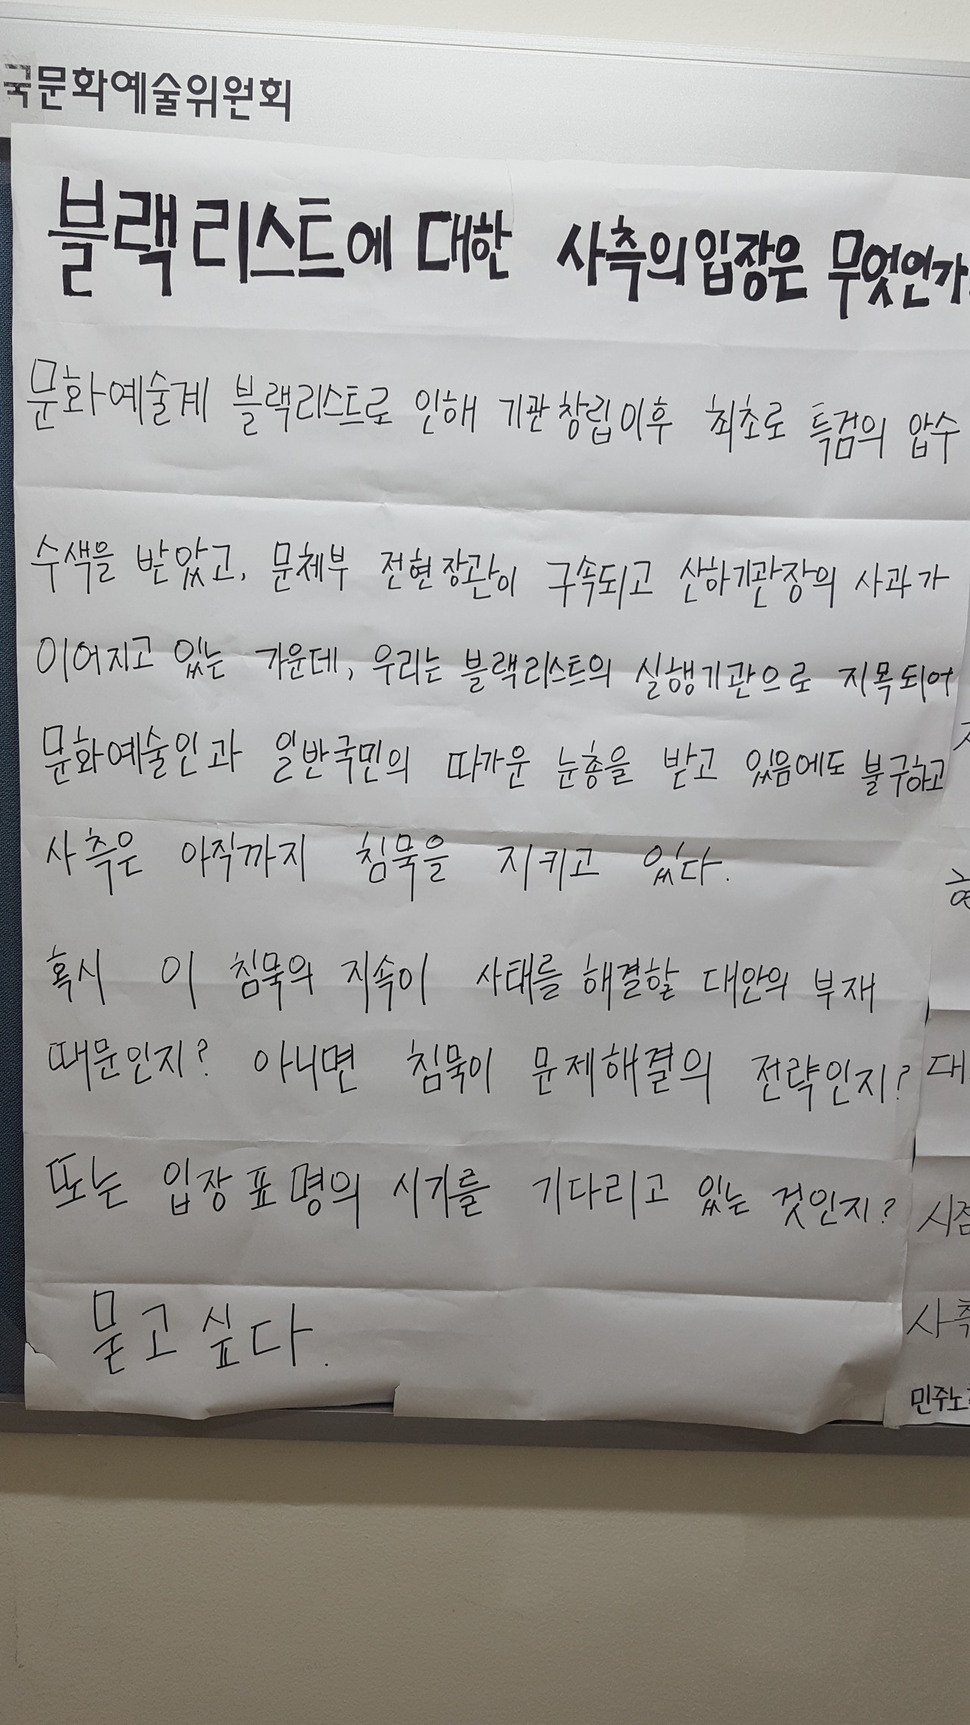 국문화예술위원회
블랙리스트에 대한 사측의 입장은 무엇인가
문화예술계 블랙리스트로 인해 기관창립이후 최초로 특검의 압수
수색을 받았고, 문체부 전현장관이 구속되고 산하기관장의 사과가
이어지고 있는 가운데, 우리는 블랙리스트의 실행기관으로 지목되어
문화예술인과 일반국민의 따가운 눈총을 받고 있음에도 불구하고
사측은 아직까지 침묵을 지키고 있다.
혹시 이 침묵의 지속이 사태를 해결할 대안의 부재
때문인지? 아니면 침묵이 문제해결의 전략인지?
또는 입장표명의 시기를 기다리고 있는 것인지?
묻고싶다.
대
시점
사측
민주노